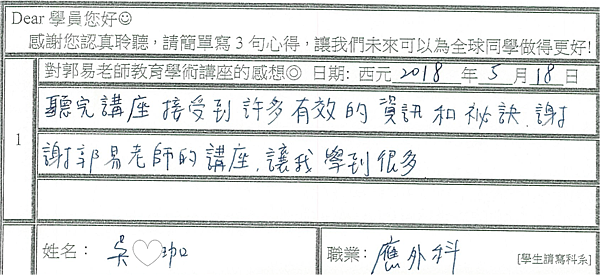 Dear 學員您好☺
感謝您認真聆聽，請簡單寫 3 句心得，讓我們未來可以為全球同學做得更好!
對郭易老師教育學術講座的感想◎ 日期: 西元 2018 年 5 月 18 日
1
聽完講座接受到許多有效的資訊和祕訣.謝
謝郭易老師的講座,讓我學到很多
姓名： 吳♡珈 職業： 應外科 [學生請寫科系]